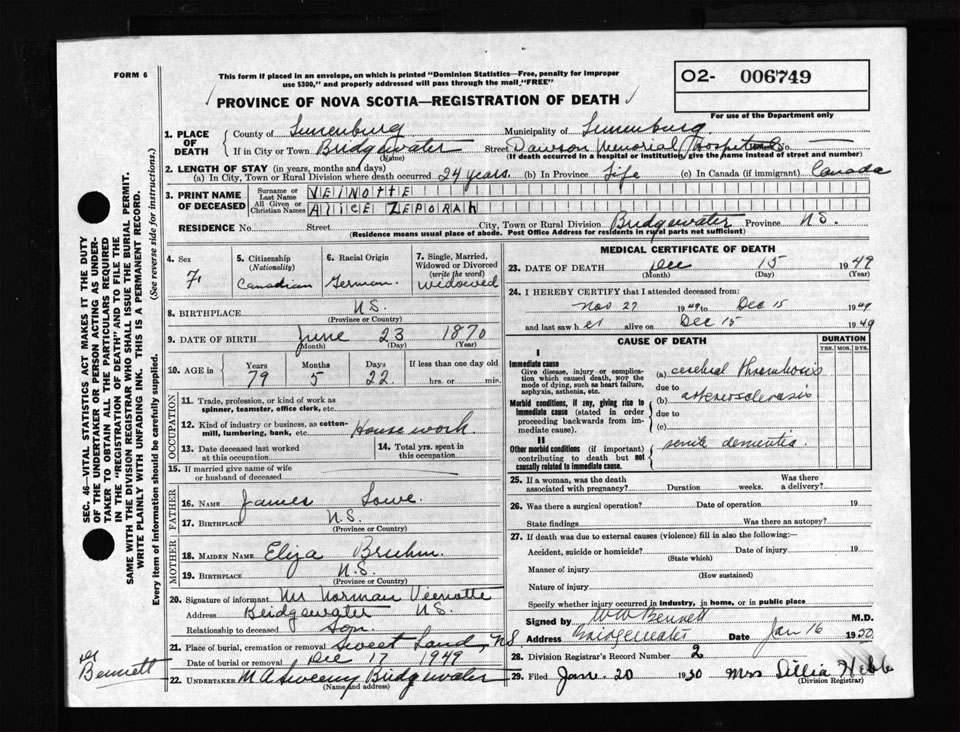 FORM 6
This form if placed in an envelope, on which is printed "Dominion Statistics—Free, penalty for improper
use $300," and properly addressed will pass through the mail "FREE"
O2- 006749
PROVINCE OF NOVA SCOTIA—REGISTRATION OF DEATH
For use of the Department only
1. PLACE OF DEATH
County of Lunenburg Municipality of Lunenburg
If in City or Town Bridgewater Street Dawson Memorial Hospital No.
(Name) (If death occurred in a hospital or institution, give the name instead of street and number)
2. LENGTH OF STAY (in years, months and days)
(a) In City, Town or Rural Division where death occurred 24 years. (b) In Province Life (c) In Canada (if immigrant) Canada
3. PRINT NAME OF DECEASED
Surname or Last Name VEINOTTE
All Given or Christian Names ALICE ZEPORAh
RESIDENCE No. Street City, Town or Rural Division Bridgewater Province N.S.
(Residence means usual place of abode. Post Office Address for residents in rural parts not sufficient)
4. Sex F.
5. Citizenship (Nationality) Canadian
6. Racial Origin German
7. Single, Married, Widowed or Divorced (write the word) widowed
8. BIRTHPLACE N.S.
(Province or Country)
9. DATE OF BIRTH June 23 1870
(Month) (Day) (Year)
10. AGE in Years Months Days If less than one day old
79 5 22 hrs. or min.
OCCUPATION
11. Trade, profession, or kind of work as
spinner, teamster, office clerk, etc.
12. Kind of industry or business, as cotton-
mill, lumbering, bank, etc. House work.
13. Date deceased last worked
at this occupation
14. Total yrs. spent in
this occupation
15. If married give name of wife
or husband of deceased
FATHER
16. NAME James Lowe.
17. BIRTHPLACE N.S.
(Province or Country)
MOTHER
18. MAIDEN NAME Eliza Bruhm.
19. BIRTHPLACE N.S.
(Province or Country)
20. Signature of informant Mr Norman Veinotte
Address Bridgewater N.S.
Relationship to deceased Son.
21. Place of burial, cremation or removal Sweet Land, NS
Date of burial or removal Dec 17 1949
22. UNDERTAKER M A Sweeny Bridgewater
(Name and address)
MEDICAL CERTIFICATE OF DEATH
23. DATE OF DEATH Dec 15 1949
(Month) (Day) (Year)
24. I HEREBY CERTIFY that I attended deceased from:
Nov 27 1949 to Dec 15 1949
and last saw her alive on Dec 15 1949
CAUSE OF DEATH
DURATION
YRS. MOS. DYS.
I
Immediate cause
Give disease, injury or complica-
tion which caused death, NOT the
mode of dying, such as heart failure,
asphyxia, asthenia, etc.
(a) cerebral thrombosis
due to
Morbid conditions, if any, giving rise to
immediate cause (stated in order
proceeding backwards from im-
mediate cause).
(b) arteriosclerosis
due to
(c)
II
Other morbid conditions (if important)
contributing to death but not
causally related to immediate cause.
senile dementia.
25. If a woman, was the death
associated with pregnancy? Duration weeks. Was there
a delivery?
26. Was there a surgical operation? Date of operation 19
State findings Was there an autopsy?
27. If death was due to external causes (violence) fill in also the following:
Accident, suicide or homicide? Date of injury 19
(State which)
Manner of injury
(How sustained)
Nature of injury
Specify whether injury occurred in industry, in home, or in public place
Signed by W W Bennett M.D.
Address Bridgewater Date Jan 16 1950.
28. Division Registrar's Record Number 2
29. Filed Jan. 20 1950 Mrs Lillia Hebb
(Division Registrar)
Dr Bennett
SEC. 46—VITAL STATISTICS ACT MAKES IT THE DUTY
OF THE UNDERTAKER OR PERSON ACTING AS UNDER-
TAKER TO OBTAIN ALL THE PARTICULARS REQUIRED
IN THE "REGISTRATION OF DEATH" AND TO FILE THE
SAME WITH THE DIVISION REGISTRAR WHO SHALL ISSUE THE BURIAL PERMIT.
WRITE PLAINLY WITH UNFADING INK. THIS IS A PERMANENT RECORD.
Every item of information should be carefully supplied. (See reverse side for instructions.)